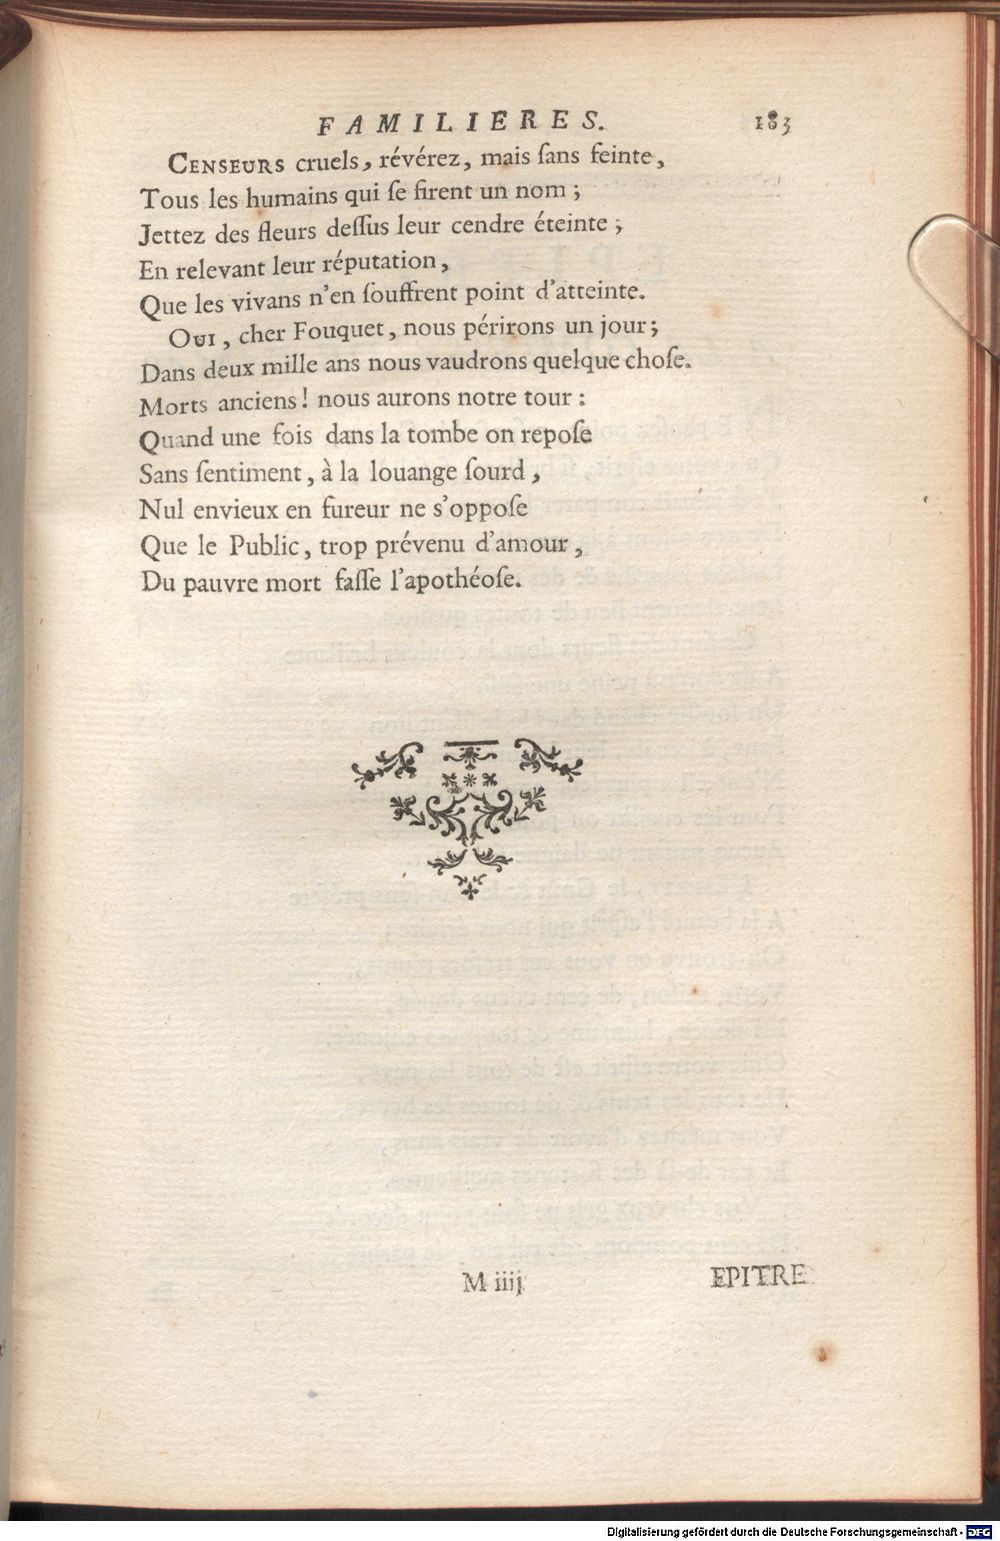 FAMILIERES. 183
CENSEURS cruels, révérez, mais ſans feinte,
Tous les humains qui ſe firent un nom ;
Jettez des fleurs deſſus leur cendre éteinte ;
En relevant leur réputation,
Que les vivans n'en ſouffrent point d'atteinte.
OUI, cher Fouquet, nous périrons un jour ;
Dans deux mille ans nous vaudrons quelque choſe.
Morts anciens ! nous aurons notre tour :
Quand une fois dans la tombe on repoſe
Sans ſentiment, à la louange ſourd,
Nul envieux en fureur ne s'oppoſe
Que le Public, trop prévenu d'amour,
Du pauvre mort faſſe l'apothéoſe.
M iiij EPITRE
Digitalisierung gefördert durch die Deutsche Forschungsgemeinschaft - DFG